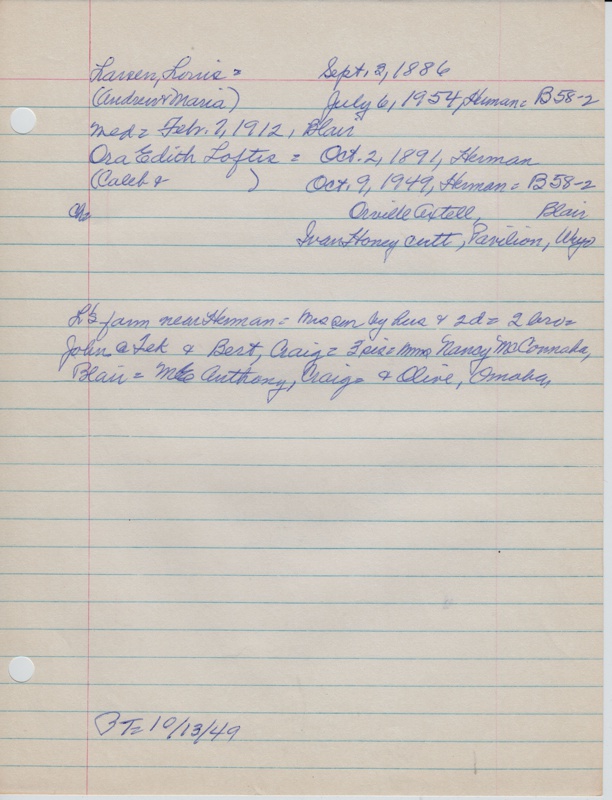 Larsen, Louis = Sept. 2, 1886
(Andrew & Maria) July 6, 1954, Herman = B58-2
Med = Febr. 7, 1912, Blair
Ora Edith Loftis = Oct. 2, 1891, Herman
(Caleb & ) Oct. 9, 1949, Herman = B58-2
Ch= Orville Axtell, Blair
Ivan Honeycutt, Pavilion, Wyo
L's farm near Herman = Mrs sur by hus & 2d = 2 bro =
John @ Tek & Bert, Craig = 3 sis = Mmes Nancy McConnaha,
Blair = Anthony, Craig = & Olive, Omaha,
BT= 10/13/49